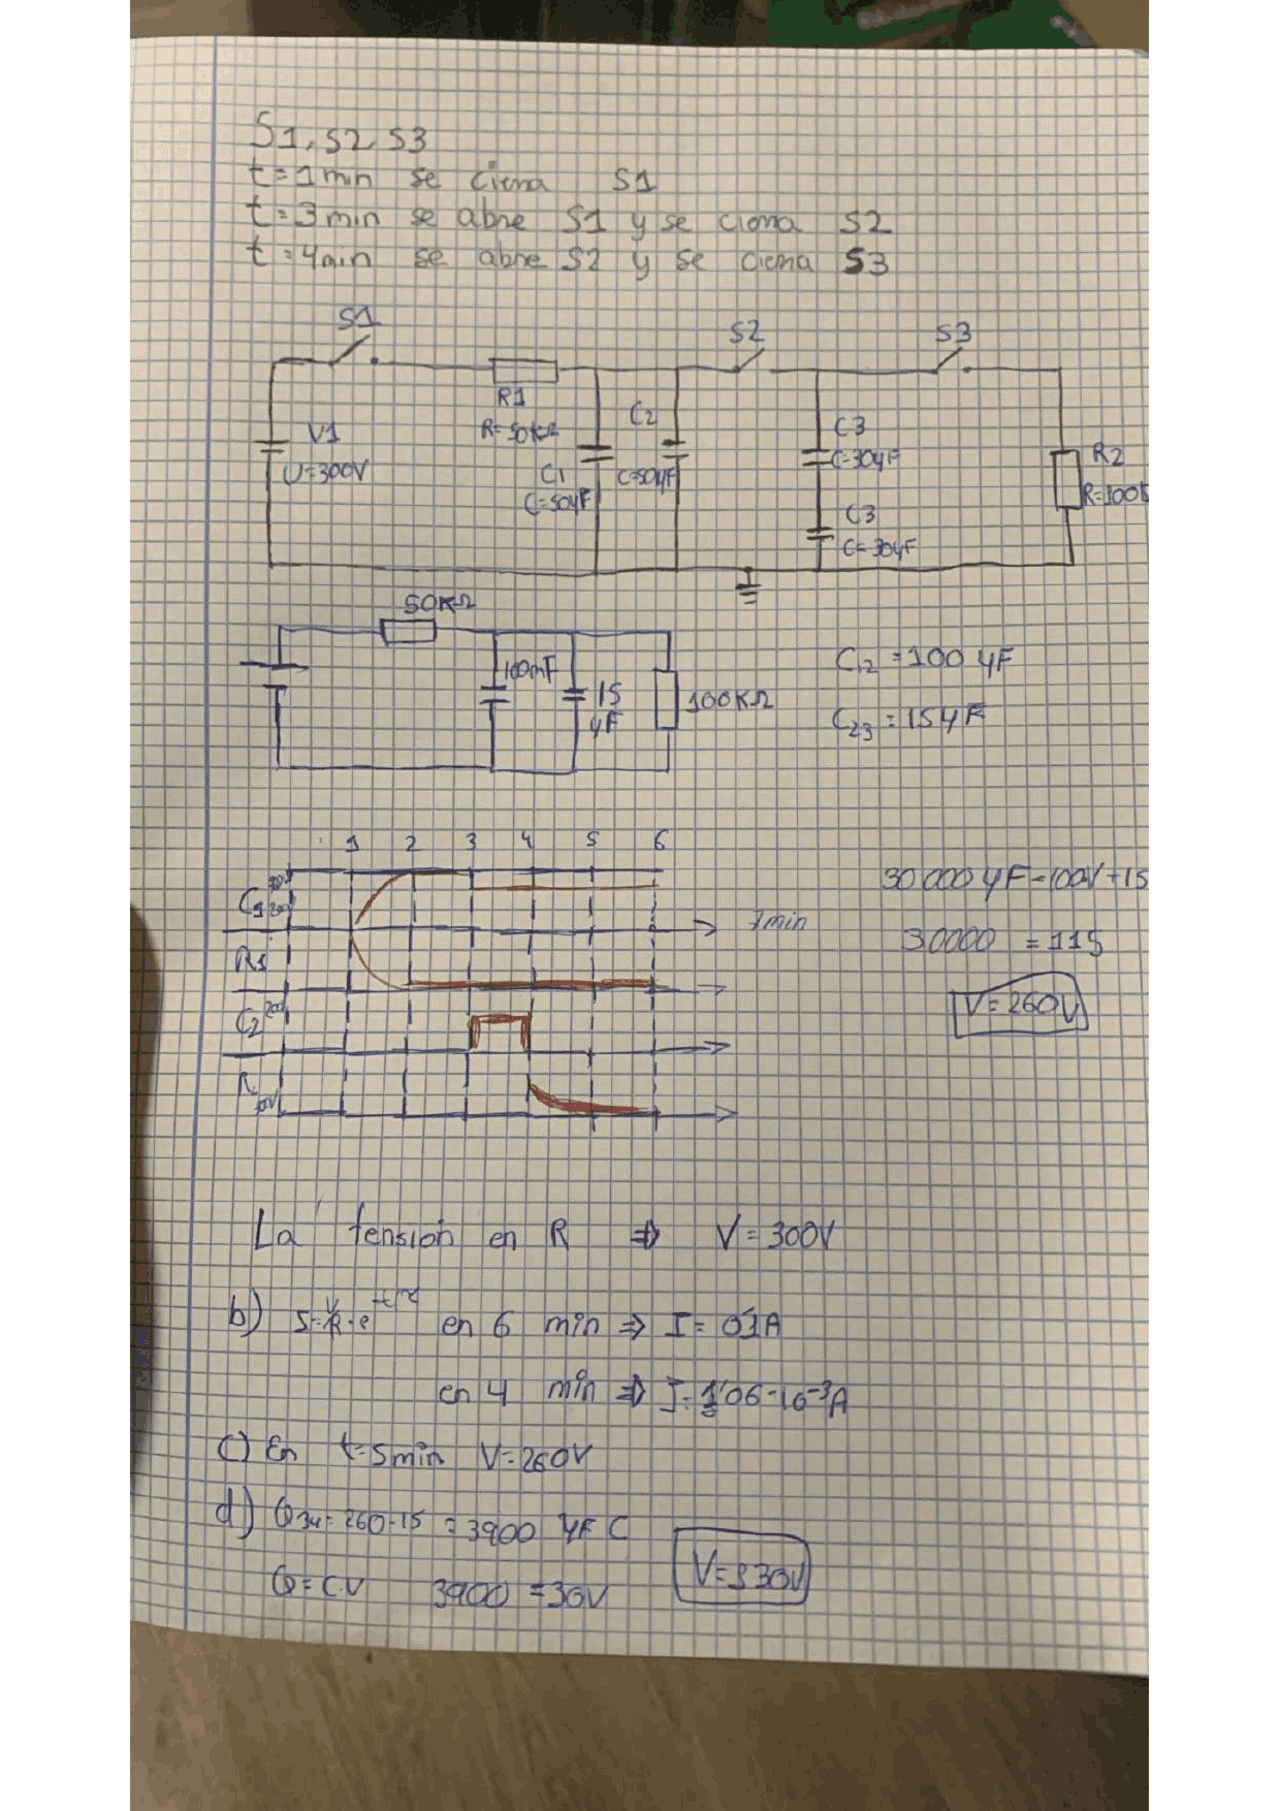 S1, S2, S3
t=1min se cierra S1
t=3min se abre S1 y se cierra S2
t=4min se abre S2 y se cierra S3
S1
S2
S3
R1
R=50KΩ
C2
C=50µF
V1
U=300V
C1
C=50µF
C3
C=30µF
R2
R=100k
C3
C=30µF
50KΩ
100mF
15
µF
100KΩ
C12 = 100 µF
C23 = 15µF
1 2 3 4 5 6
C1
7min
R1
C2
R2
30000 µF=100V+15
30000 = 115
V=260V
La tensión en R ⇒ V=300V
b) en 6 min ⇒ I= 01A
en 4 min ⇒ I= 1'06-10-3A
c) En t=5min V=260V
d) Q34= 260-15 = 3900 µF C
Q=C.V 3900 =30V